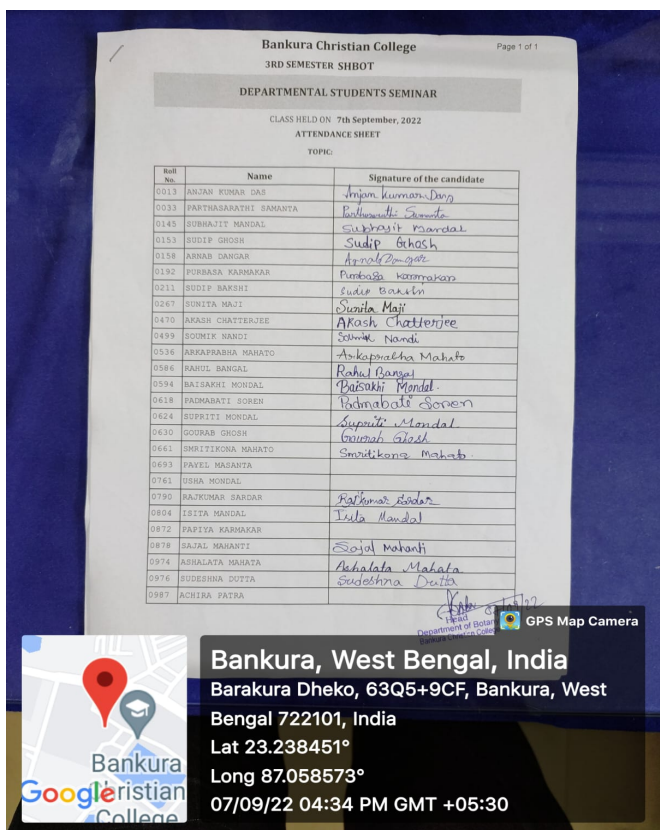 Bankura Christian College
Page 1 of 1
3RD SEMESTER SHBOT
DEPARTMENTAL STUDENTS SEMINAR
CLASS HELD ON 7th September, 2022
ATTENDANCE SHEET
TOPIC:
Roll No. Name Signature of the candidate
0013 ANJAN KUMAR DAS Anjan Kumar Das
0033 PARTHASARATHI SAMANTA Parthasarathi Samanta
0145 SUBHAJIT MANDAL Subhajit Mandal
0153 SUDIP GHOSH Sudip Ghosh
0158 ARNAB DANGAR Arnab Dangar
0192 PURBASA KARMAKAR Purbasa Karmakar
0211 SUDIP BAKSHI Sudip Bakshi
0267 SUNITA MAJI Sunita Maji
0470 AKASH CHATTERJEE AKash Chatterjee
0499 SOUMIK NANDI Soumik Nandi
0536 ARKAPRABHA MAHATO Arkaprabha Mahato
0586 RAHUL BANGAL Rahul Bangal
0594 BAISAKHI MONDAL Baisakhi Mondal.
0618 PADMABATI SOREN Padmabati Soren
0624 SUPRITI MONDAL Supriti Mondal
0630 GOURAB GHOSH Gourab Ghosh
0661 SMRITIKONA MAHATO Smritikona Mahato.
0693 PAYEL MASANTA
0761 USHA MONDAL
0790 RAJKUMAR SARDAR Rajkumar Sardar
0804 ISITA MANDAL Isita Mandal
0872 PAPIYA KARMAKAR
0878 SAJAL MAHANTI Sajal Mahanti
0974 ASHALATA MAHATA Ashalata Mahata
0976 SUDESHNA DUTTA Sudeshna Dutta
0987 ACHIRA PATRA
Head
Department of Botan
Bankura Christian Colle
GPS Map Camera
Bankura, West Bengal, India
Barakura Dheko, 63Q5+9CF, Bankura, West
Bengal 722101, India
Lat 23.238451°
Long 87.058573°
07/09/22 04:34 PM GMT +05:30
Bankura
Christian
College
Google